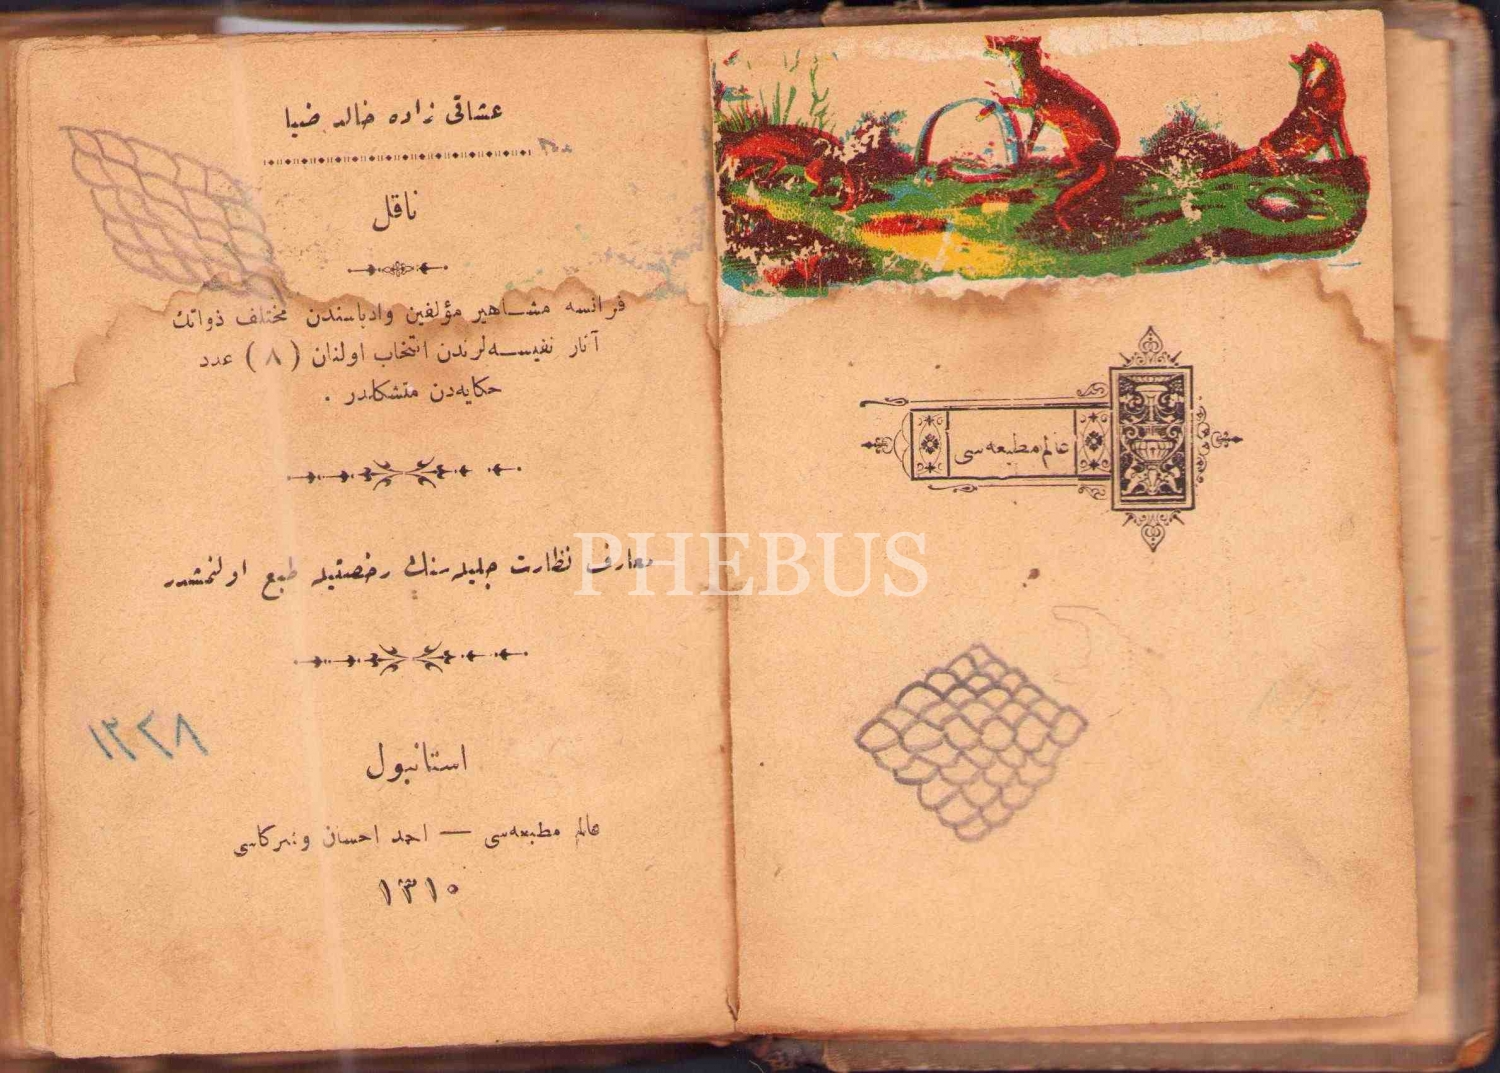 عالم مطبعه‌سی
عشاقی زاده خالد ضیا
ناقل
فرانسه مشاهیر مؤلفین وادباسندن مختلف ذواتك
آثار نفیسه‌لرندن انتخاب اولنان ( ٨ ) عدد
حکایه‌دن متشکلدر .
معارف نظارت جلیله‌سنك رخصتیله طبع اولنمشدر
استانبول
عالم مطبعه‌سی — احمد احسان وشرکاسی
١٣١٠
١٣٢٨
PHEBUS